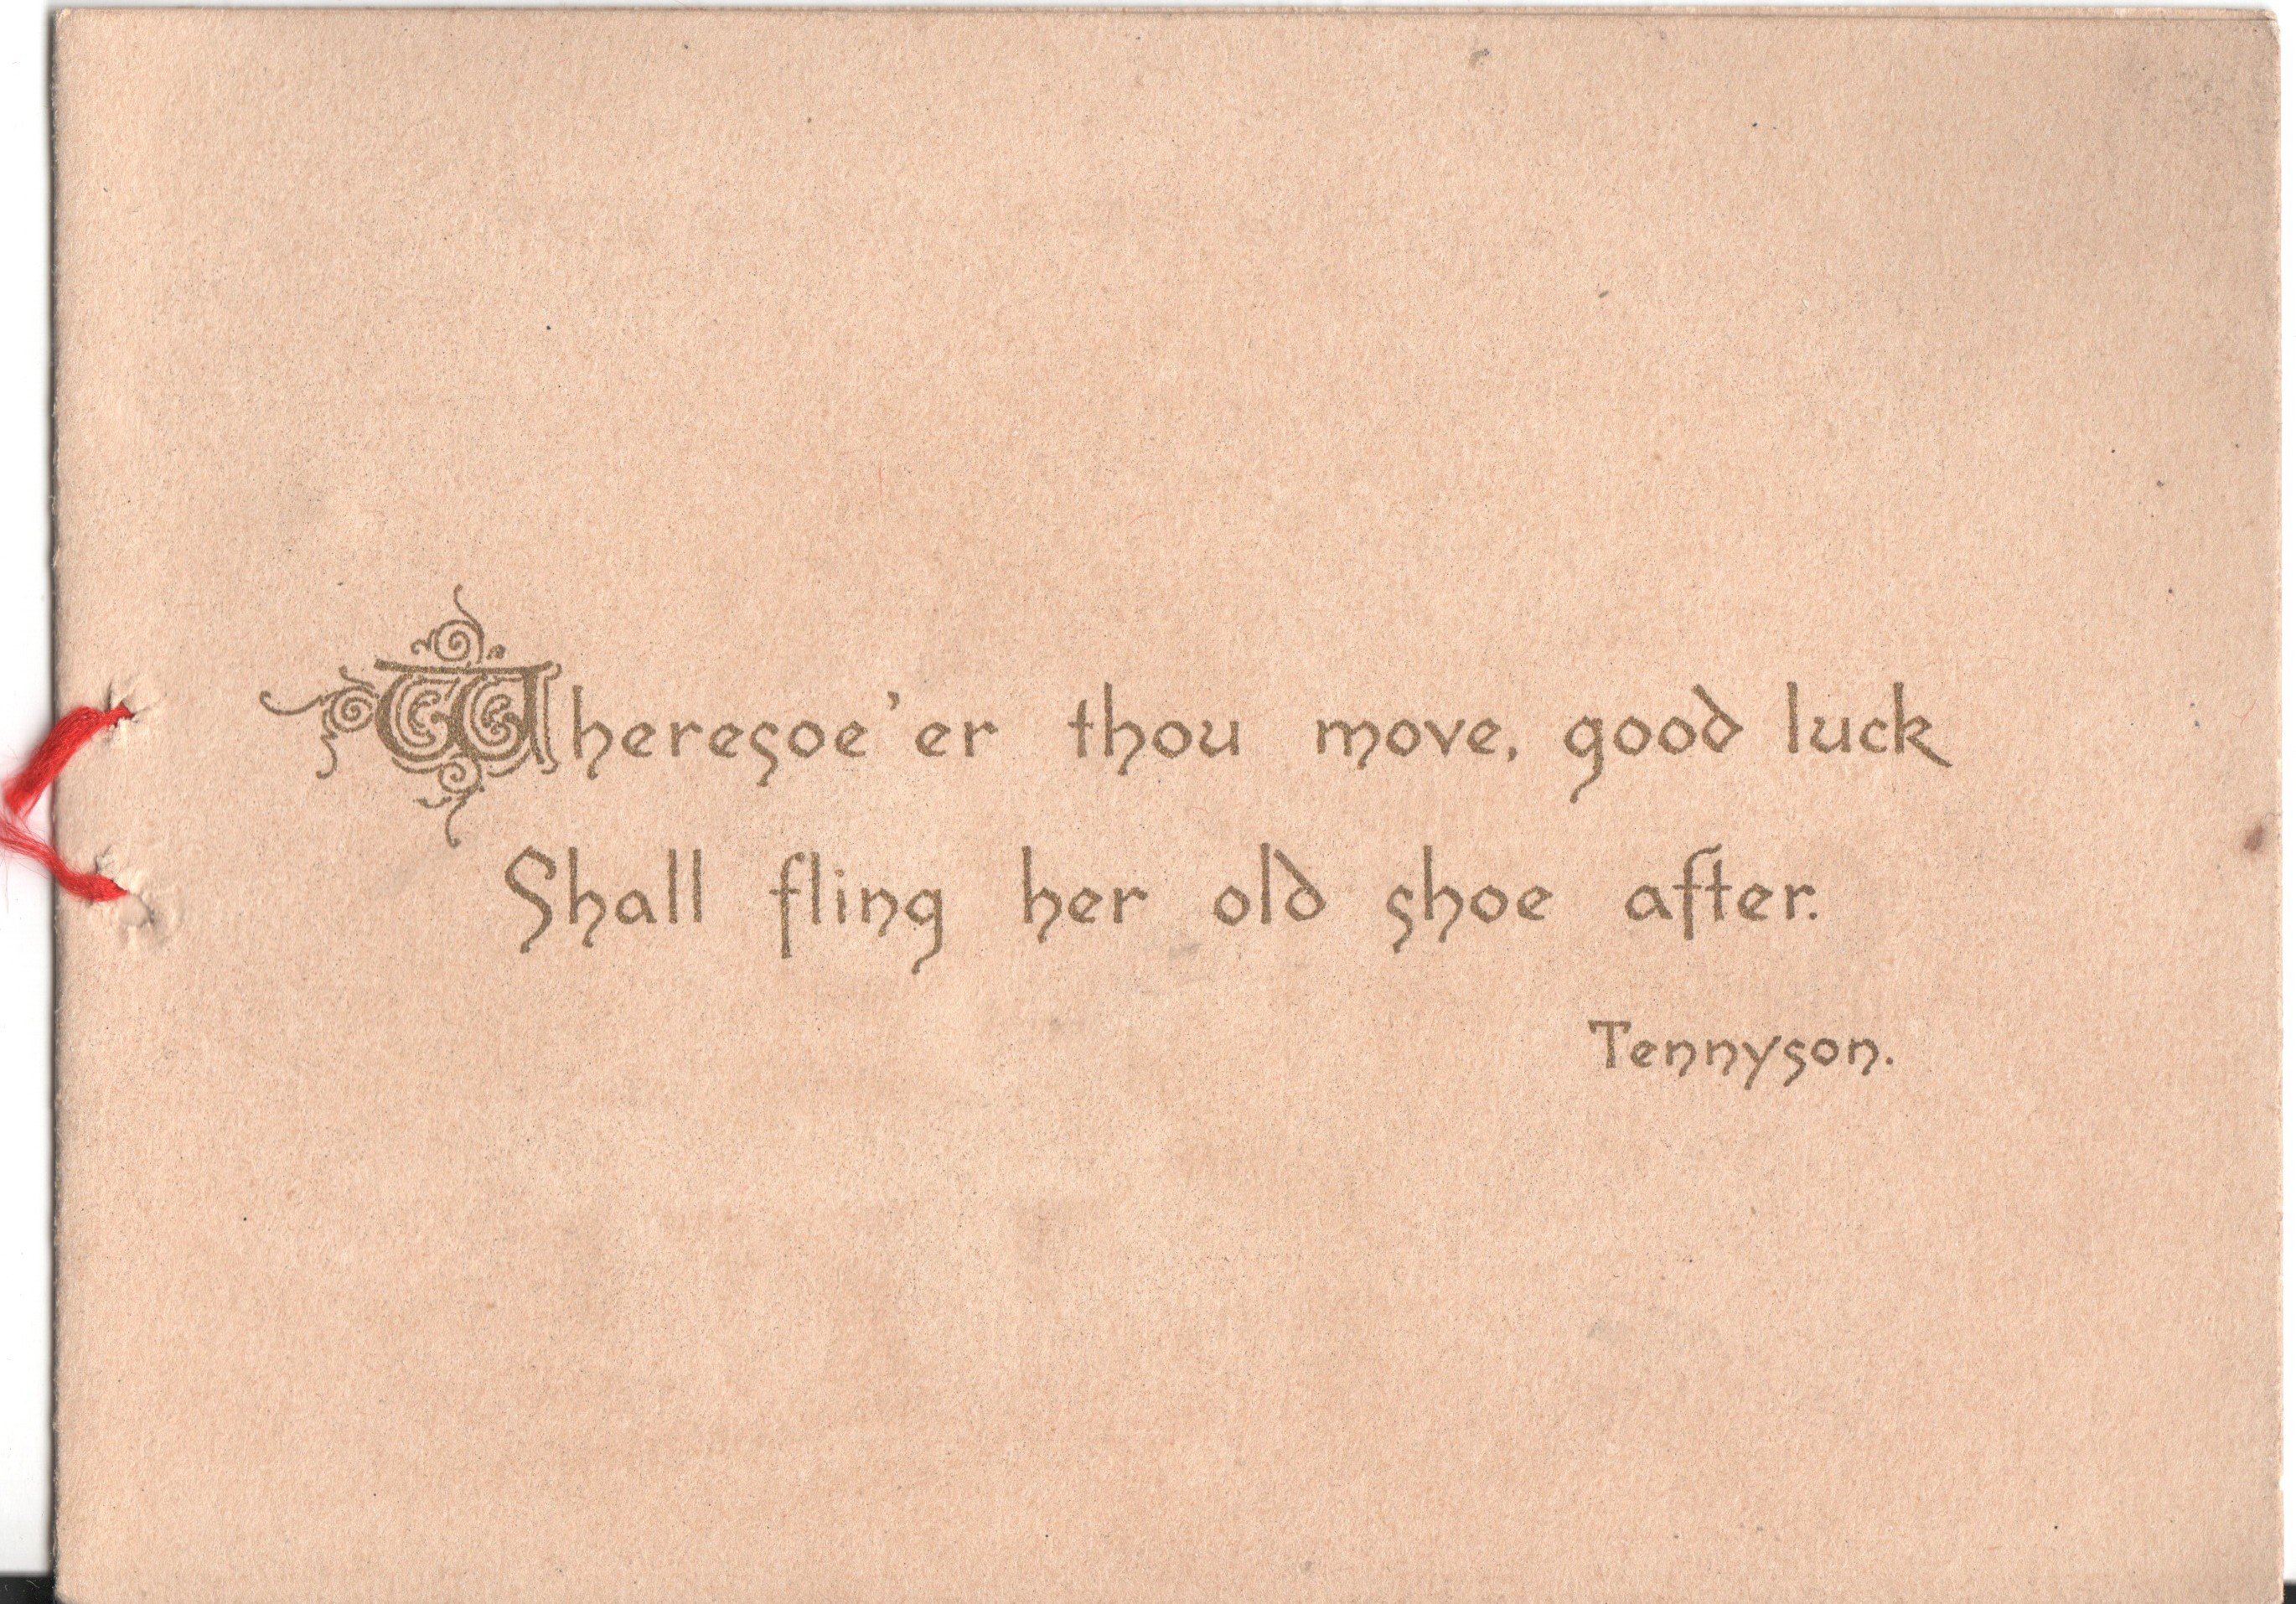 Wheresoe'er thou move, good luck
Shall fling her old shoe after.
Tennyson.